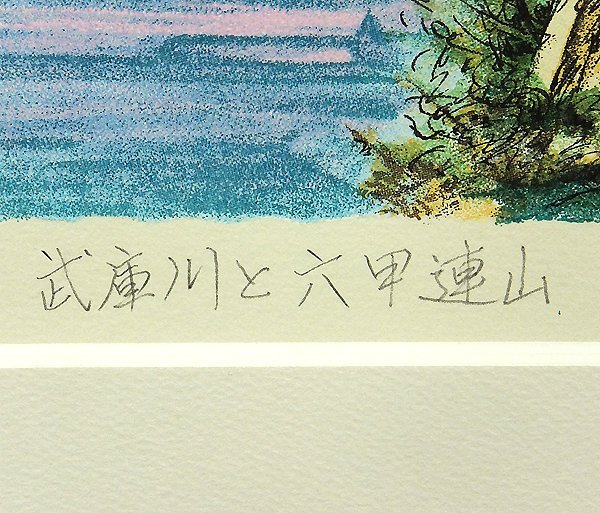 武庫川と六甲連山